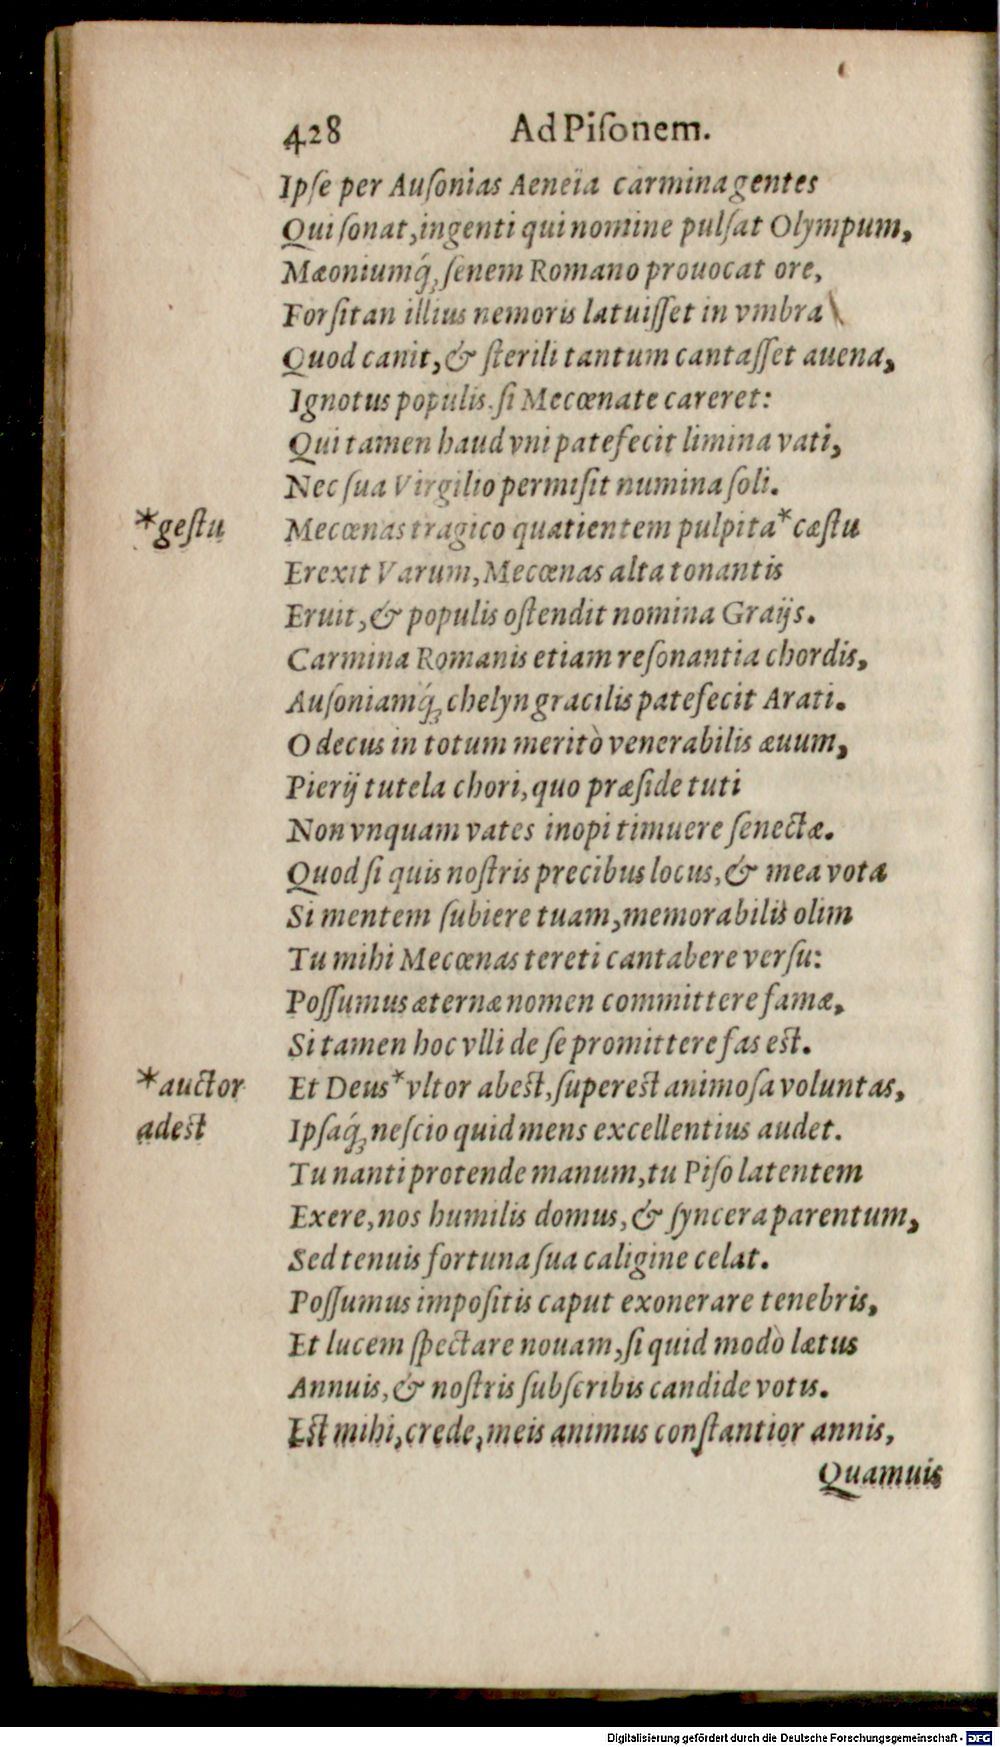 428 Ad Piſonem.
Ipſe per Auſonias Aeneïa carmina gentes
Qui ſonat, ingenti qui nomine pulſat Olympum,
Mæoniumq́; ſenem Romano prouocat ore,
Forſitan illius nemoris latuiſſet in vmbra
Quod canit, & ſterili tantum cantaſſet auena,
Ignotus populis. ſi Mecœnate careret:
Qui tamen haud vni patefecit limina vati,
Nec ſua Virgilio permiſit numina ſoli.
*geſtu Mecœnas tragico quatientem pulpita *cæſtu
Erexit Varum, Mecœnas alta tonantis
Eruit, & populis oſtendit nomina Graijs.
Carmina Romanis etiam reſonantia chordis,
Auſoniamq́; chelyn gracilis patefecit Arati.
O decus in totum meritò venerabilis æuum,
Pierij tutela chori, quo præſide tuti
Non vnquam vates inopi timuere ſenectæ.
Quod ſi quis noſtris precibus locus, & mea vota
Si mentem ſubiere tuam, memorabilis olim
Tu mihi Mecœnas tereti cantabere verſu:
Poſſumus æternæ nomen committere famæ,
Si tamen hoc vlli de ſe promittere fas eſt.
*auctor Et Deus *vltor abeſt, ſupereſt animoſa voluntas,
adeſt Ipſaq́; neſcio quid mens excellentius audet.
Tu nanti protende manum, tu Piſo latentem
Exere, nos humilis domus, & ſyncera parentum,
Sed tenuis fortuna ſua caligine celat.
Poſſumus impoſitis caput exonerare tenebris,
Et lucem ſpectare nouam, ſi quid modò lætus
Annuis, & noſtris ſubſcribis candide votis.
Eſt mihi, crede, meis animus conſtantior annis,
Quamuis
Digitalisierung gefördert durch die Deutsche Forschungsgemeinschaft - DFG